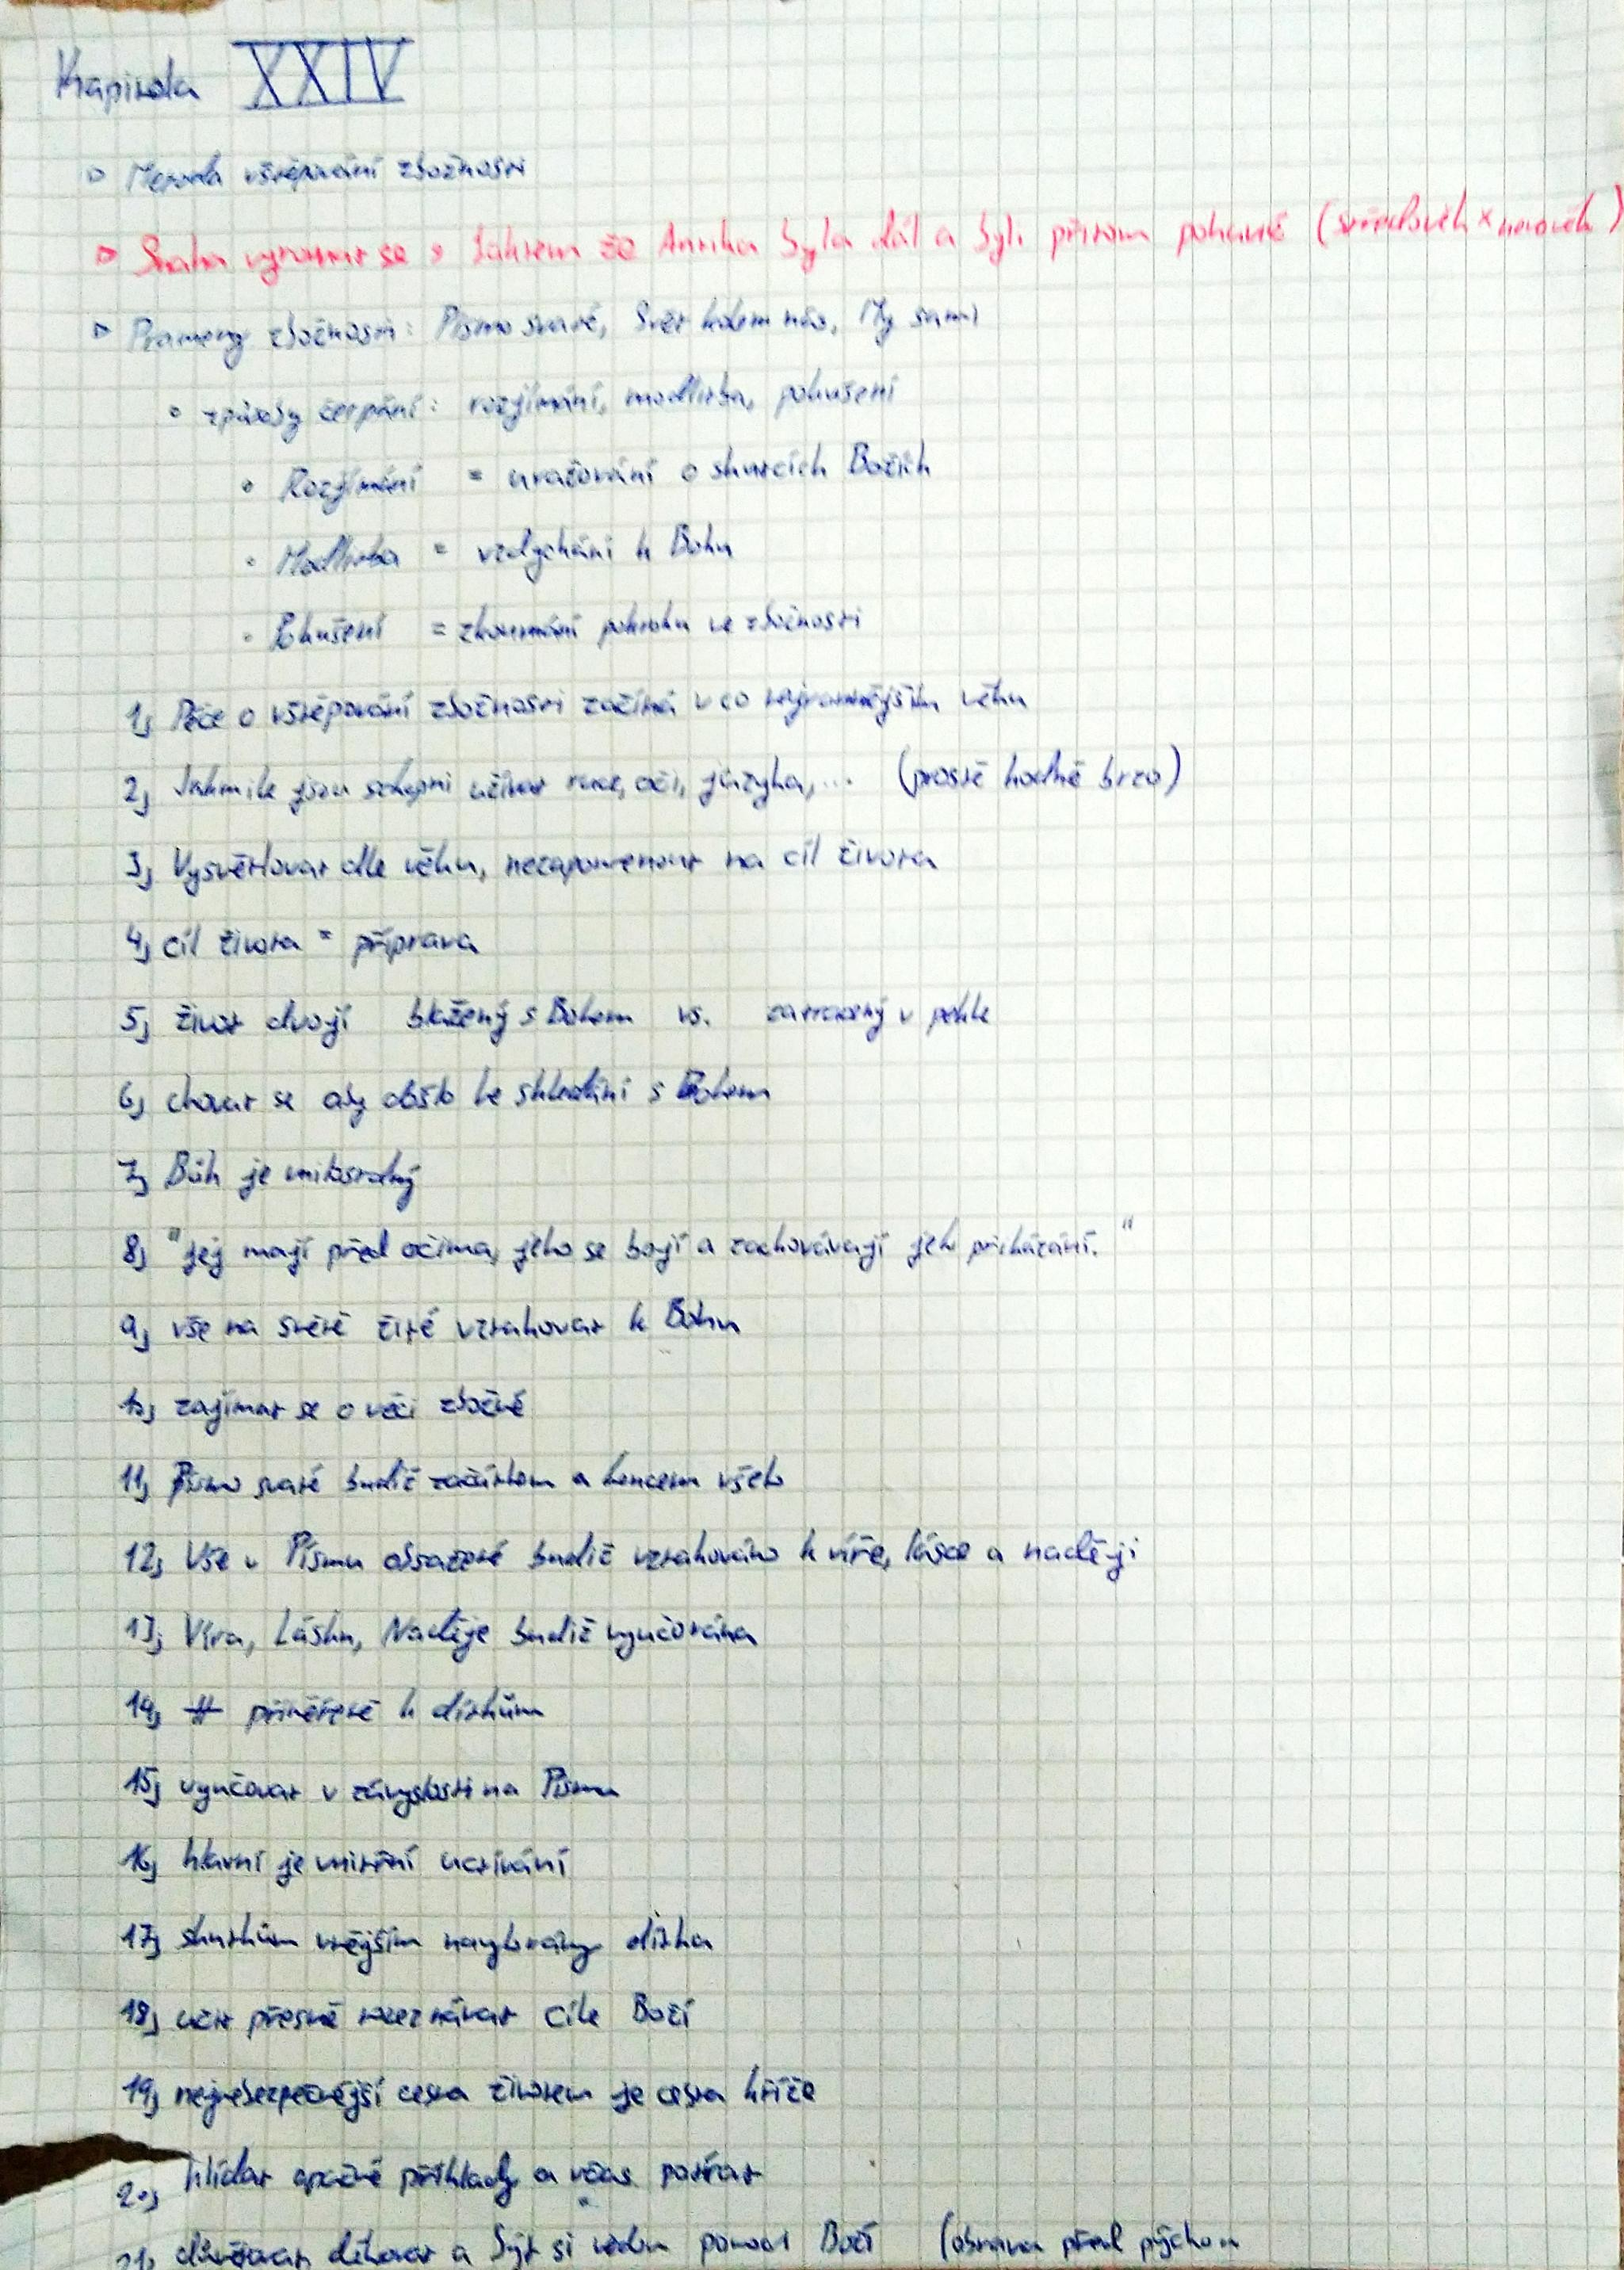 Kapitola XXIV
Metoda vštěpování zbožnosti
Snaha vyrovnat se s faktem že Antika byla dál a byli přitom pohané (středověk x novověk)
Prameny zbožnosti: Písmo svaté, Svět kolem nás, My sami
způsoby čerpání: rozjímání, modlitba, pokušení
Rozjímání = uvažování o skutcích Božích
Modlitba = vzdychání k Bohu
Pokušení = zkoumání pokroku ve zbožnosti
1, Péče o vštěpování zbožnosti začíná v co nejrannějším věku
2, Jakmile jsou schopni užívat ruce, oči, jazyka,... (prostě hodně brzo)
3, Vysvětlovat dle věku, nezapomenout na cíl života
4, cíl života = příprava
5, život dvojí blažený s Bohem vs. zatracený v pekle
6, chovat se aby došlo ke shledání s Bohem
7, Bůh je milosrdný
8, "jej mají před očima, jeho se bojí a zachovávají jeho přikázání."
9, vše na světě žité vztahovat k Bohu
10, zajímat se o věci zbožné
11, Písmo svaté budiž začátkem a koncem všeho
12, Vše v Písmu obsažené budiž vztahováno k víře, lásce a naději
13, Víra, Láska, Naděje budiž vyučována
14, přiměřeně k dítkům
15, vyučovat v závyslosti na Písmu
16, hlavní je vnitřní uctívání
17, skutkům vnějším navykovány dítka
18, učit přesně rozeznávat cíle Boží
19, nejnebezpečnější cesta životem je cesta kříže
20, hlídat opačné příklady a včas potírat
21, děkovat a být si vědom pomoci Boží (obrana před pýchou